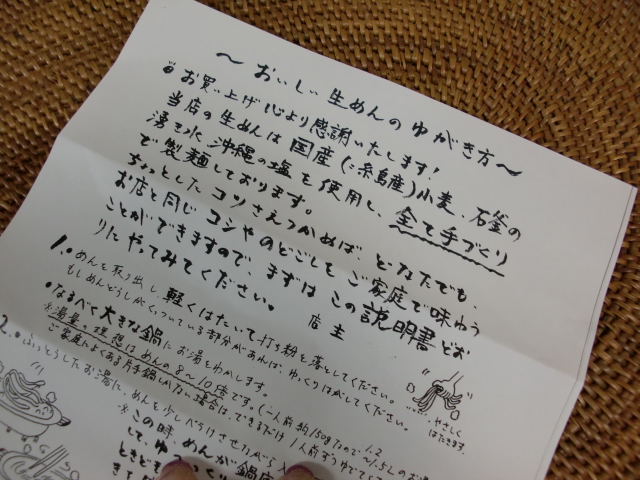 〜おいしい生めんのゆがき方〜
お買い上げ心より感謝いたします!
当店の生めんは国産(糸島産)小麦、石釜の
湧き水、沖縄の塩を使用し、全て手づくり
で製麺しております。
ちょっとしたコツさえつかめば、どなたでも、
お店と同じコシやのどごしをご家庭で味ゆう
ことができますので、まずはこの説明書どお
りにやってみてください。 店主
1.・めんを取り出し、軽くはたいて打ち粉を落としてください。
もしめんどうしがくっついている部分があれば、ゆっくりはがしてください。
やさしくはたきます。
・なるべく大きな鍋にお湯をわかします。
※湯量の理想はめんの8〜10倍です。(一人前約150gなので1.2〜1.5Lのお湯
ご家庭によくある片手鍋しかない場合は、できるだけ1人前ずつゆでて
2.・ふっとうしたお湯に、めんを少しずつ
※この時、めんが鍋底
ときどき